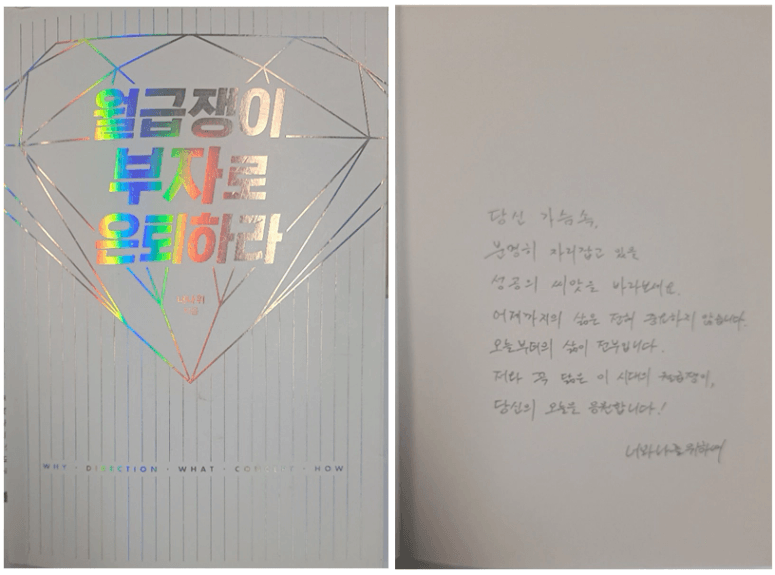 월급쟁이
부자로
은퇴하라
너나위
지음
WHY · DIRECTION · WHAT · CONCEPT · HOW
당신 가슴속,
분명히 자리잡고 있을
성공의 씨앗을 바라보세요.
어제까지의 삶은 전혀 중요하지 않습니다.
오늘부터의 삶이 전부입니다.
저와 꼭 닮은 이 시대의 월급쟁이,
당신의 오늘을 응원합니다!
너와나를위하여